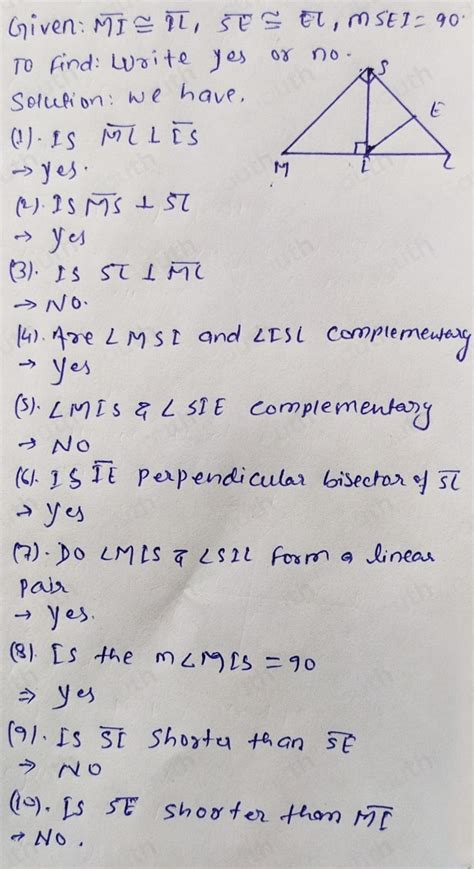 Given: MI ≅ IL, SE ≅ EL, MSEI = 90.
To find: Write yes or no.
Solution: we have,
S
E
M
L
(1). IS ML ⊥ IS
→ yes.
(2). IS MS ⊥ SL
→ yes
(3). IS SL ⊥ ML
→ NO.
(4). Are ∠MSI and ∠ISL complementary
→ yes
(5). ∠MIS & ∠SIE complementary
→ NO
(6). IS IE perpendicular bisector of SL
→ yes
(7). DO ∠MIS & ∠SIL form a linear
pair
→ yes.
(8). Is the m∠MIS = 90
⇒ yes
(9). IS SI Shorter than SE
→ NO
(10). Is SE shorter than MI
→ NO.